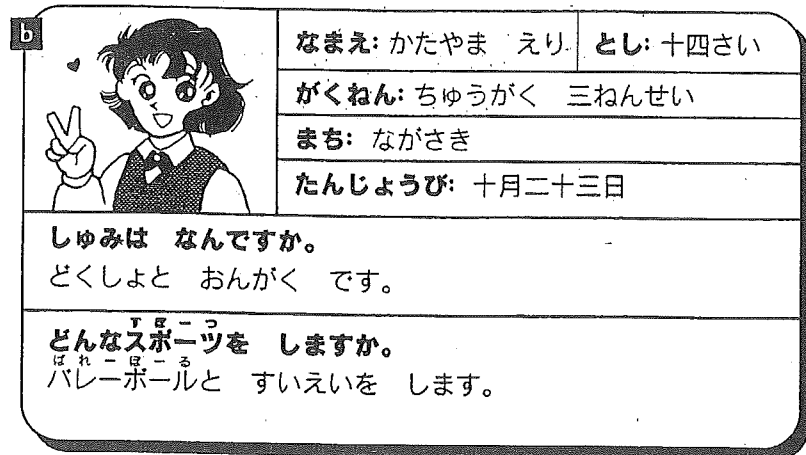 b
なまえ: かたやま えり とし: 十四さい
がくねん: ちゅうがく 三ねんせい
まち: ながさき
たんじょうび: 十月二十三日
しゅみは なんですか。
どくしょと おんがく です。
すぽーつ
どんなスポーツを しますか。
ばれーぼーる
バレーボールと すいえいを します。